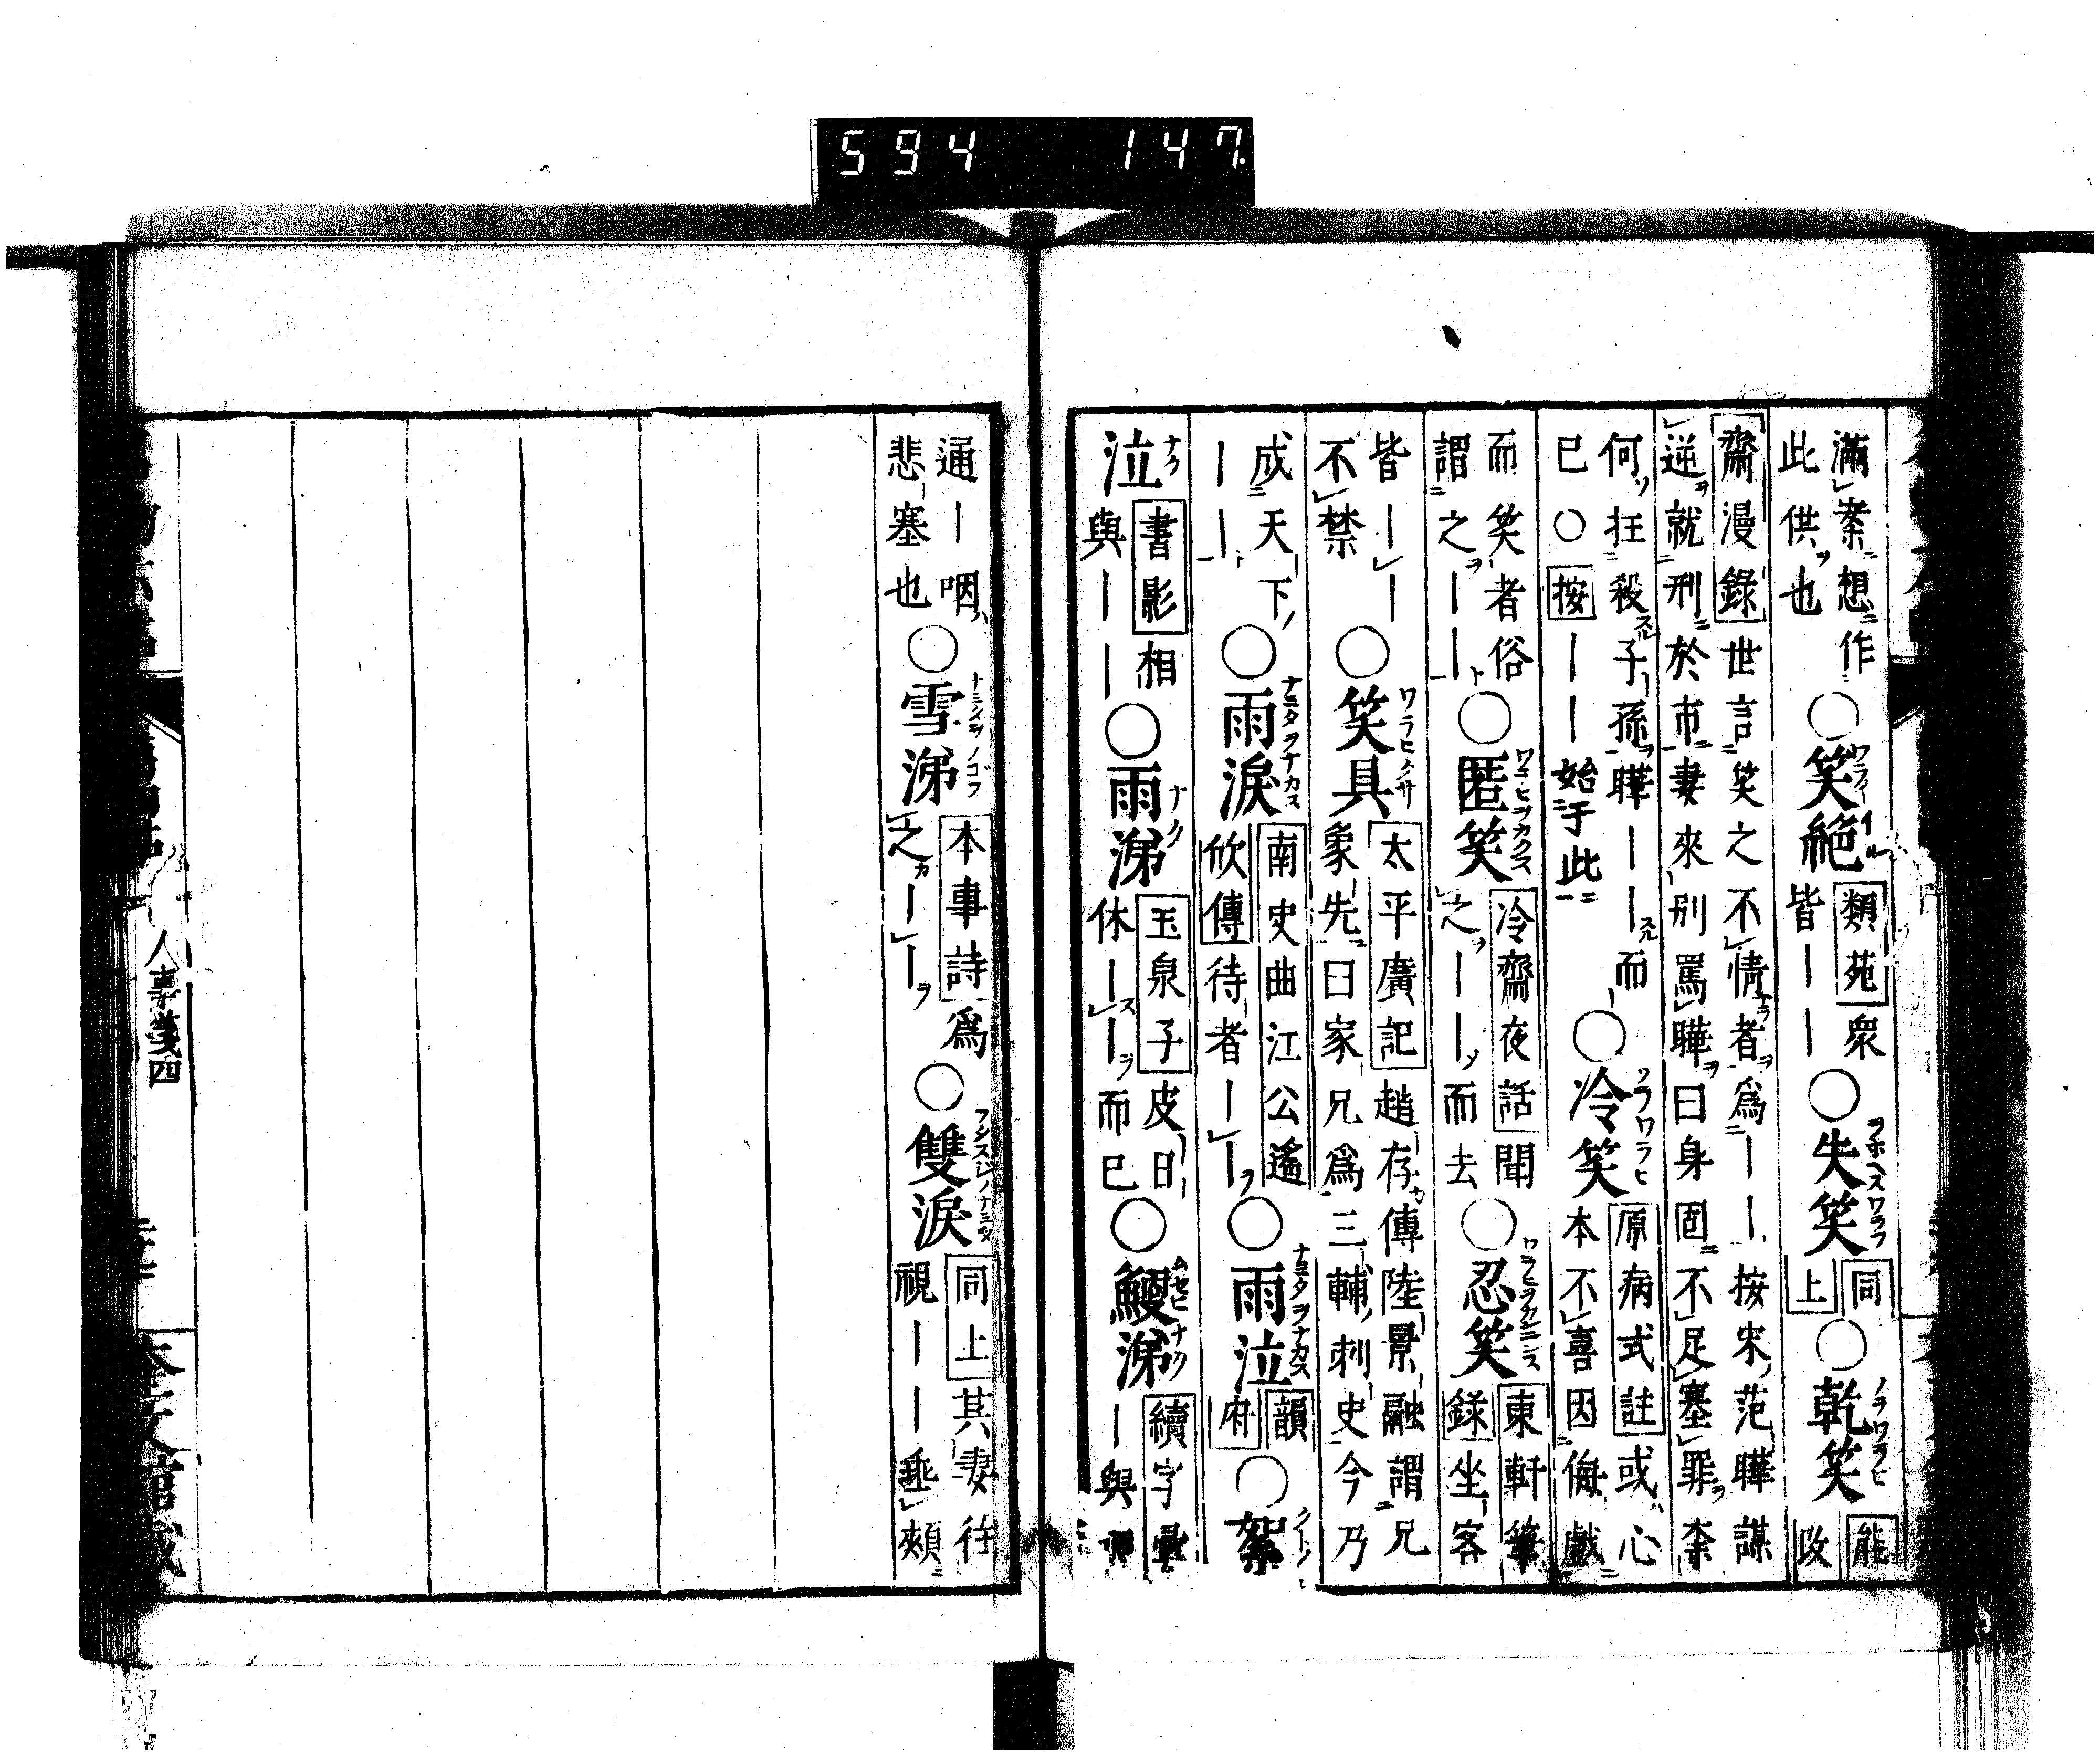 594 147
滿案想作
此供也
○笑絕
類苑衆
皆｜｜
○失笑
同
上
○乾笑
能
改
齋漫錄世言笑之不情者爲｜｜按宋范曄謀
逆就刑於市妻來別罵曄曰身固不足塞罪柰
何狂殺子孫曄｜｜而
已○按｜｜始于此
○冷笑
原病式註或心
本不喜因侮戲
而笑者俗
謂之｜｜
○匿笑
冷齋夜話聞
之｜｜而去
○忍笑
東軒筆
錄坐客
皆｜｜
不禁
○笑具
太平廣記趙存傳陸景融謂兄
象先曰家兄爲三輔刺史今乃
成天下
｜｜
○雨淚
南史曲江公遙
欣傳待者｜｜
○雨泣
韻
府
○絮
泣
書影相
與｜｜
○雨涕
玉泉子皮日
休｜｜而已
○鯁涕
續字彙
｜與
通｜咽
悲塞也
○雪涕
本事詩爲
之｜｜
○雙淚
同上其妻往
視｜｜垂頰
人事箋四